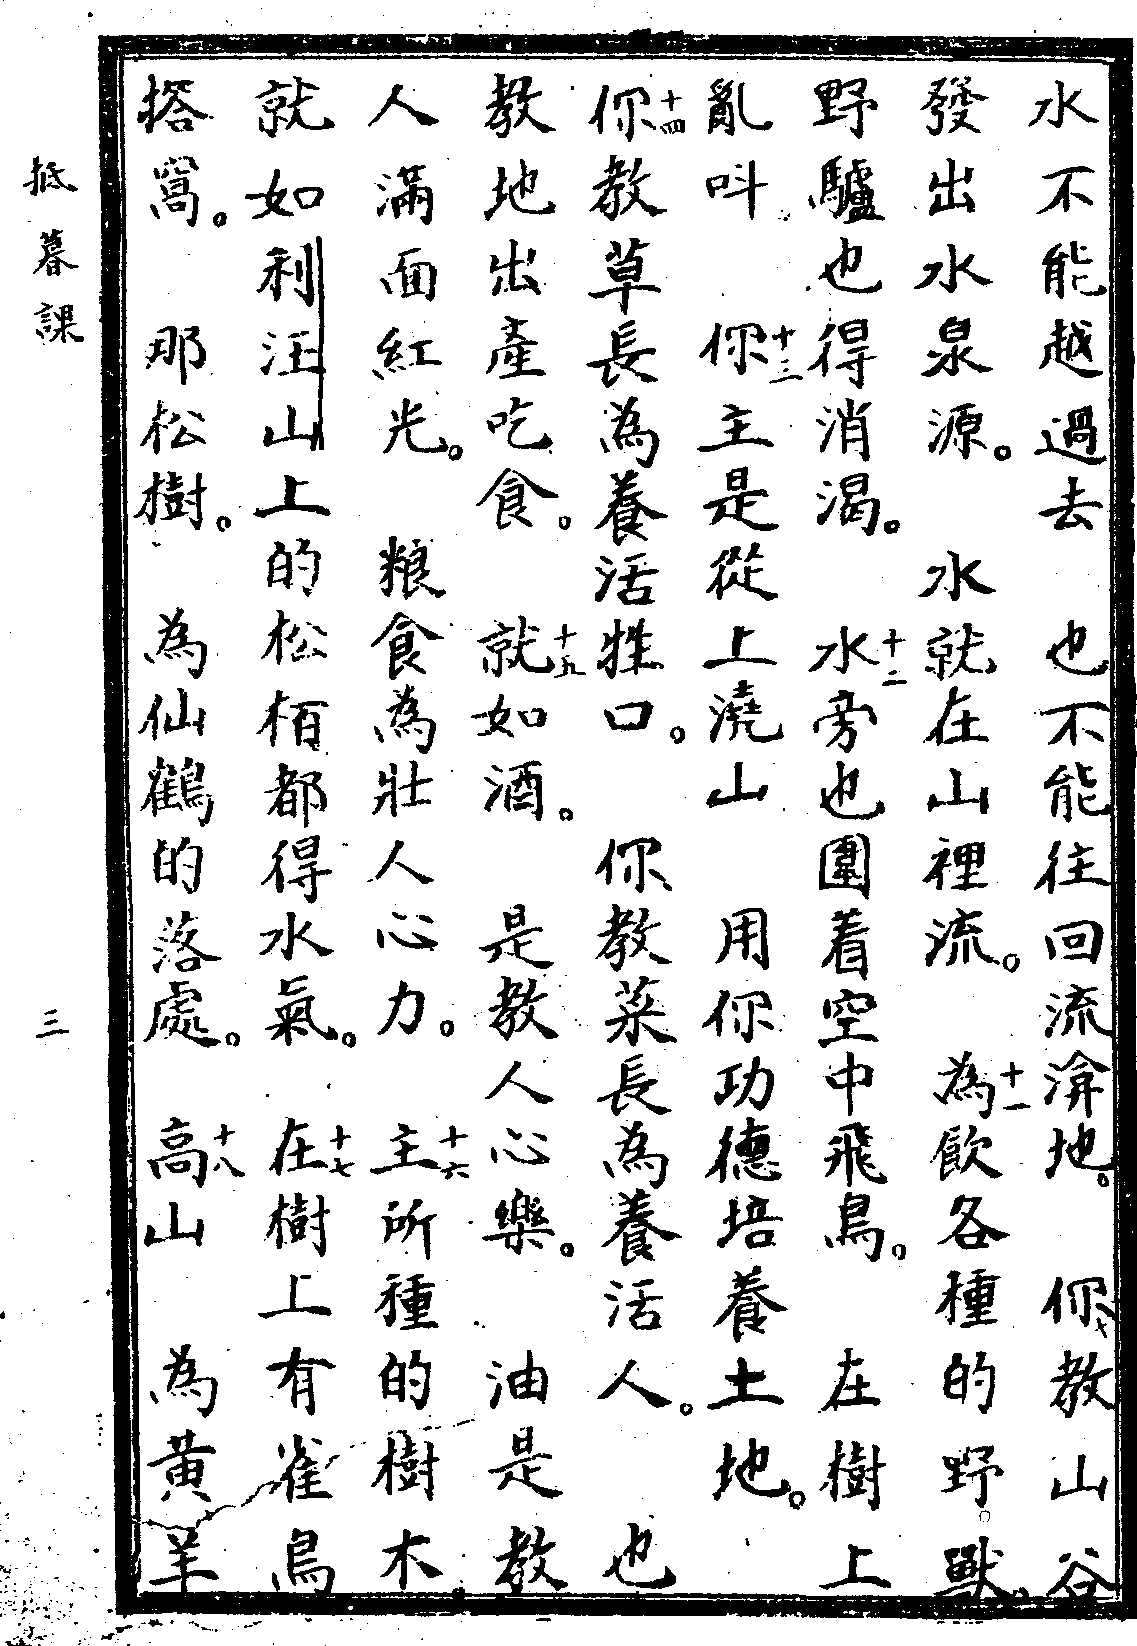 水不能越過去　也不能往回流渰地。　你十教山谷
發出水泉源。　水就在山裡流。　為十一飲各種的野獸。
野驢也得消渴。　水十二旁也圍着空中飛鳥。　在樹上
亂叫　你十三主是從上澆山　用你功德培養土地。
你十四教草長為養活牲口。　你教菜長為養活人。　也
教地出產吃食。　就十五如酒。　是教人心樂。　油是教
人滿面紅光。　粮食為壯人心力。　主十六所種的樹木
就如利汪山上的松栢都得水氣。　在十七樹上有雀鳥
搭窩。　那松樹。　為仙鶴的落處。　高十八山　為黃羊
抵暮課
三